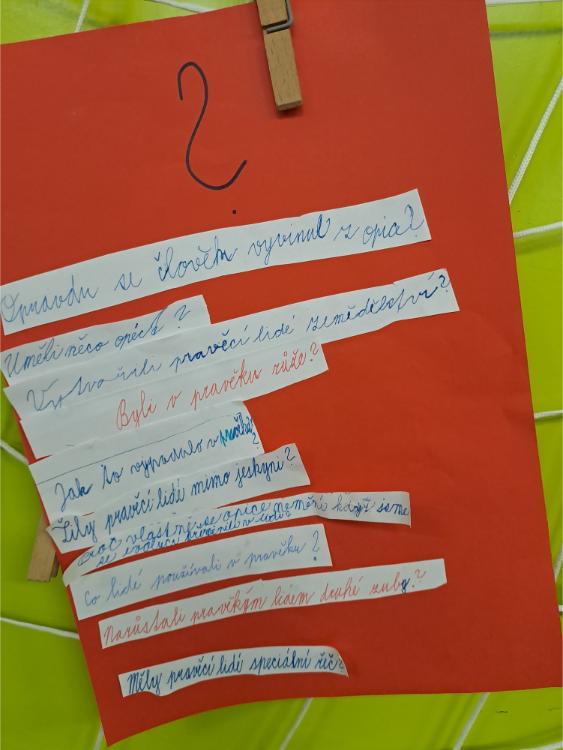 ?
Opravdu se člověk vyvinul z opia?
Uměli něco opéct?
Vytvořili pravěcí lidé zemědělství?
Byli v pravěku růže?
Jak to vypadalo v pravěku?
Žily pravěcí lidé mimo jeskyni?
proč vlastně se opice nemění když jsme
se
Co lidé používali v pravěku?
Narůstali pravěkým lidem druhé zuby?
Měly pravěcí lidé speciální řeč?